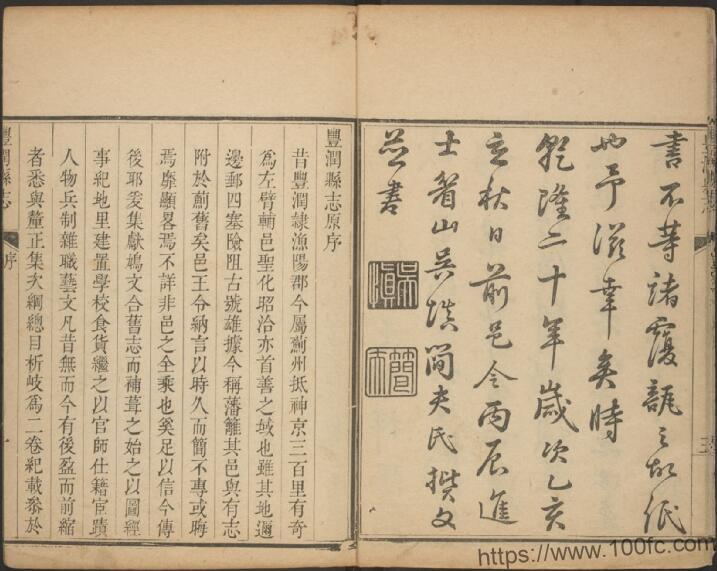 書不等諸覆瓿之故紙
也予滋幸矣時
乾隆二十年歲次乙亥
立秋日前邑令丙辰進
士眷山吳慎簡夫氏撰文
並書
吳慎
豐潤縣志原序
昔豐潤隸漁陽郡今屬薊州抵神京三百里有奇
為左臂輔邑聖化昭洽亦首善之域也雖其地邇
邊郵四塞險阻古號雄據今稱藩籬其邑與有志
附於薊舊矣邑王令納言以時久而簡不專或晦
焉靡顯畧焉不詳非邑之全乘也奚足以信今傳
後耶爰集獻鳩文合舊志而補葺之始之以圖經
事紀地里建置學校食貨繼之以官師仕籍宦蹟
人物兵制雜職藝文凡昔無而今有後盈而前縮
者悉與釐正集次綱總目析岐為二卷紀載叅於
豐潤縣志
序
一
https://www.100fc.com